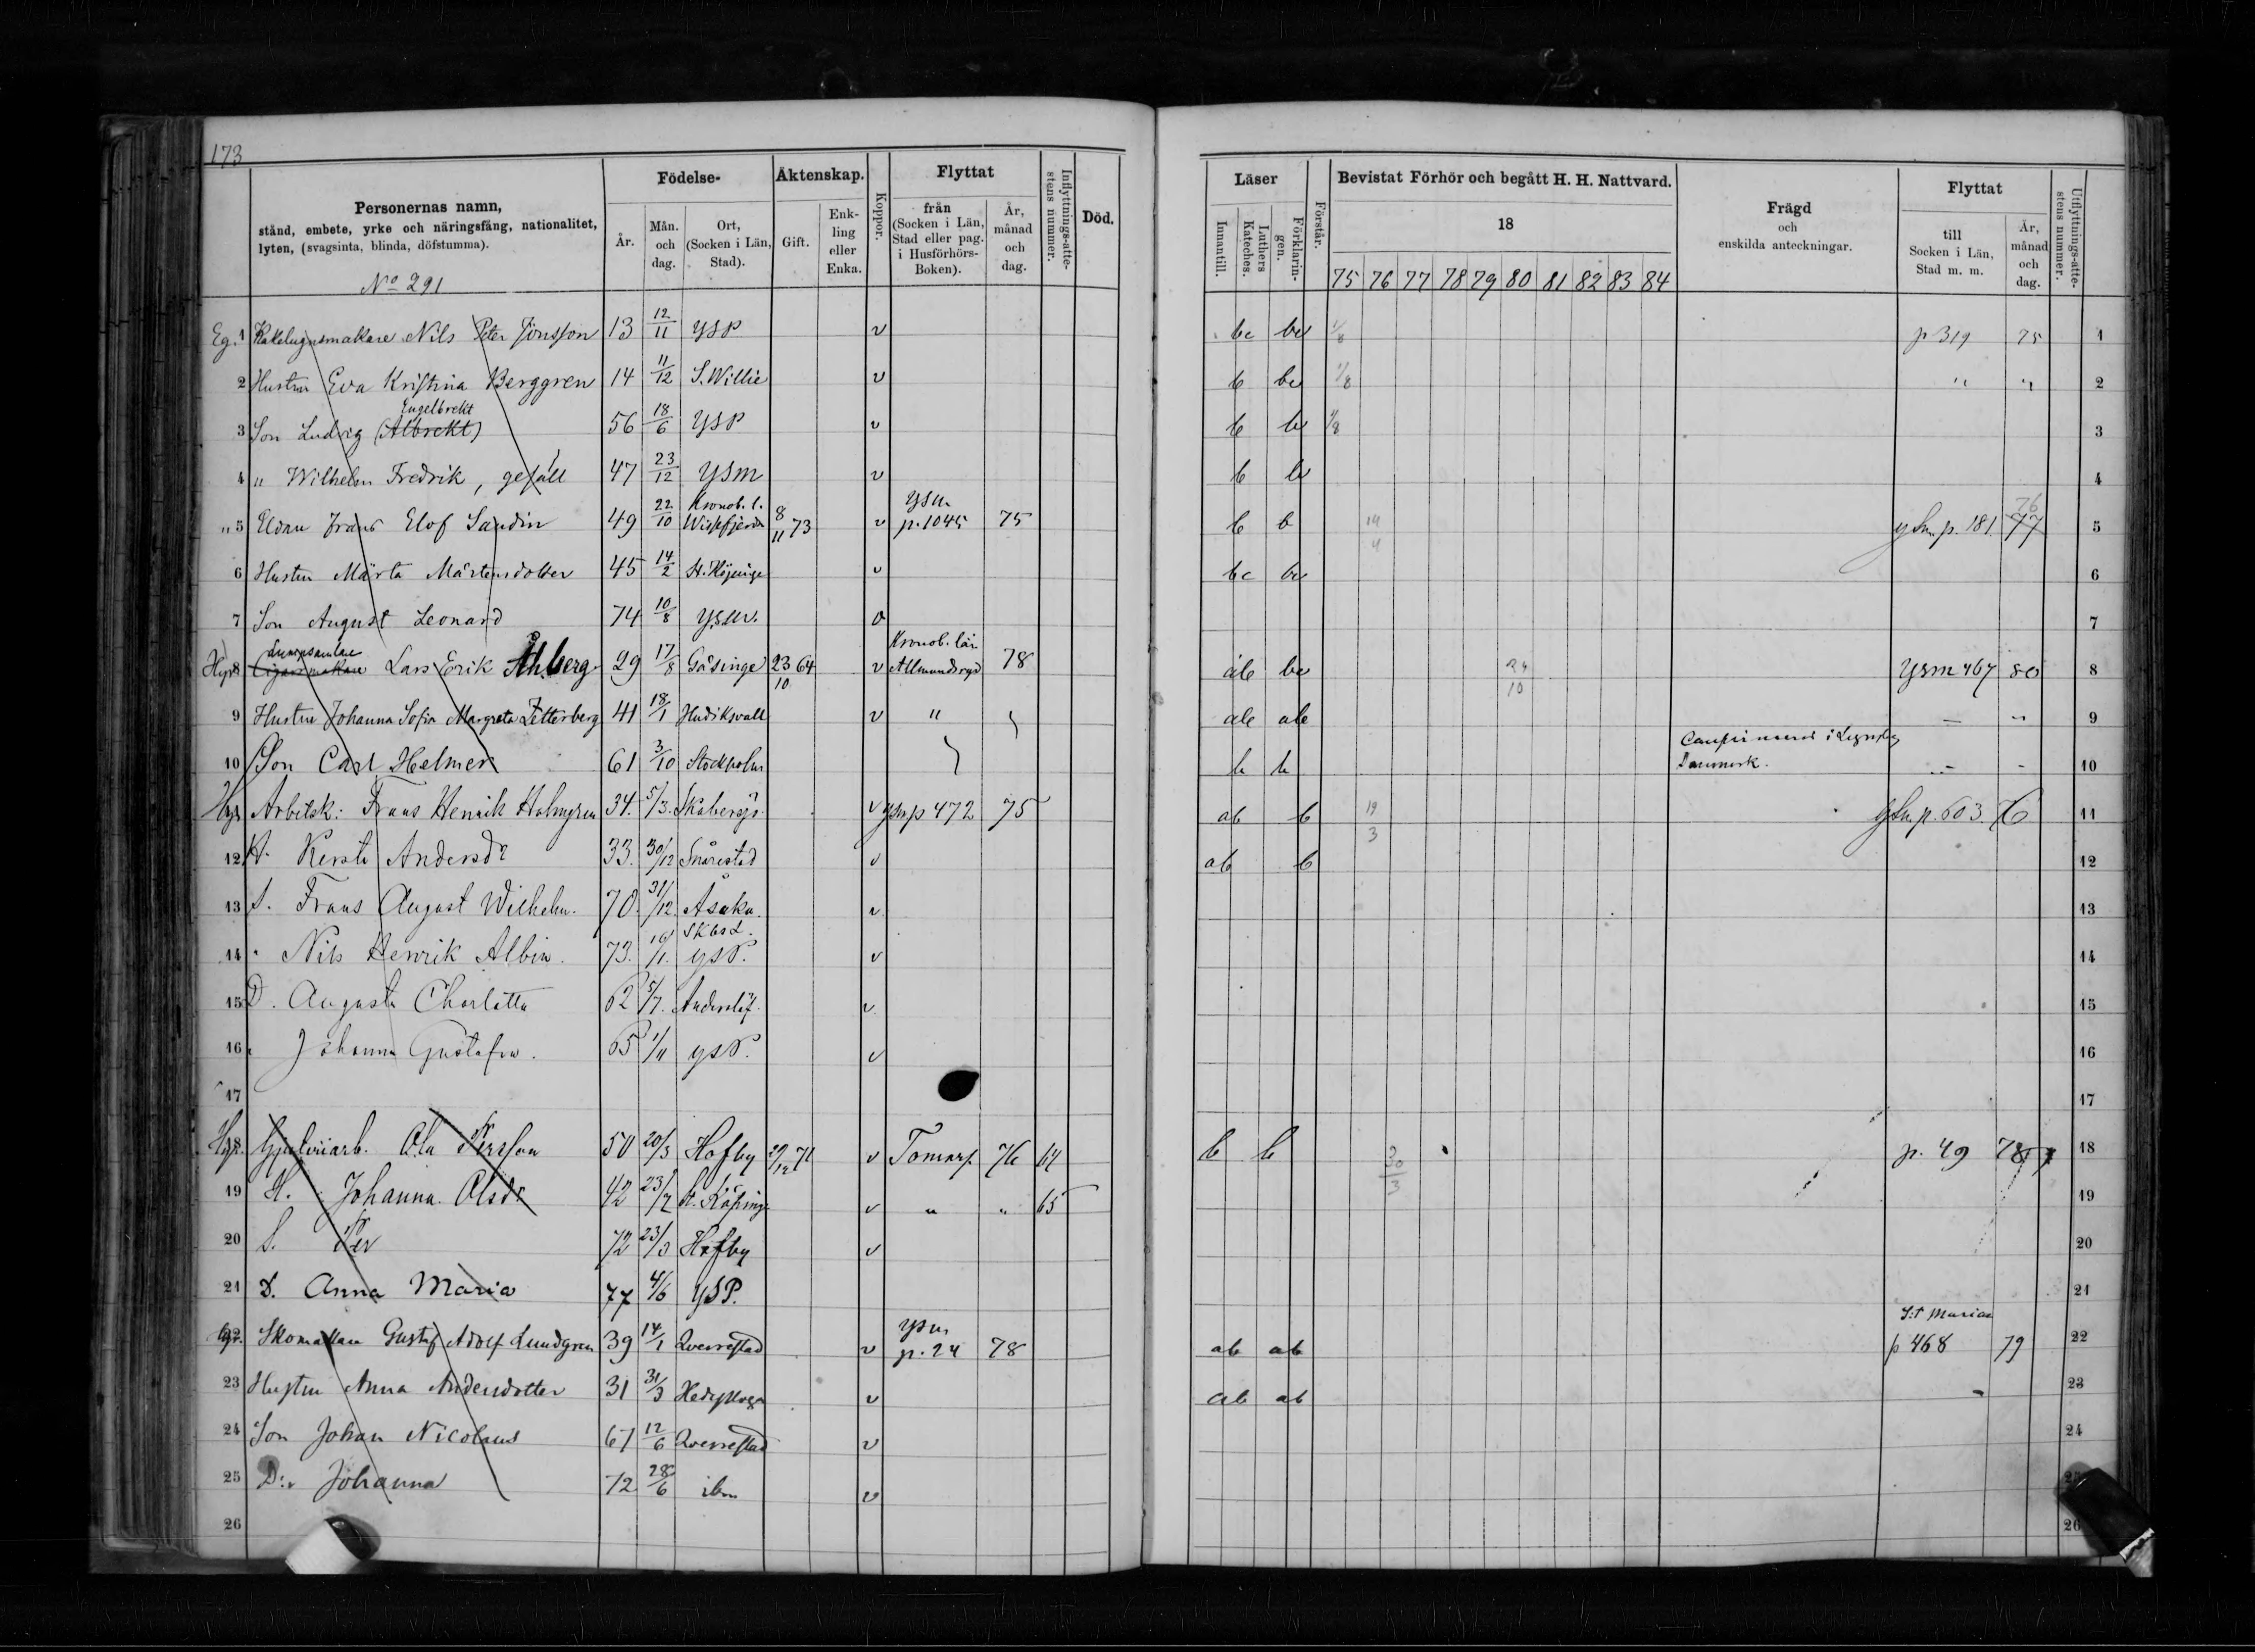 173
Personernas namn,
stånd, embete, yrke och näringsfång, nationalitet,
lyten, (svagsinta, blinda, döfstumma).
No 291
Födelse-
År.
Mån. och dag.
Ort, (Socken i Län, Stad).
Äktenskap.
Gift.
Enk- ling eller Enka.
Koppor.
Flyttat
från (Socken i Län, Stad eller pag. i Husförhörs- Boken).
År, månad och dag.
Inflyttnings-atte- stens nummer.
Död.
Läser
Innantill.
Luthers Kateches.
Förklarin- gen.
Förstår.
Bevistat Förhör och begått H. H. Nattvard.
18
75 76 77 78 79 80 81 82 83 84
Frägd
och
enskilda anteckningar.
Flyttat
till Socken i Län, Stad m. m.
År, månad och dag.
Utflyttnings-atte- stens nummer.
Eg. 1 Kakelugnsmakare Nils Peter Jönsson 13 12/11 YSP v bc bc 1/8 p 319 75 1
2 Hustru Eva Kristina Berggren 14 11/12 S. Willie v b bc 1/8 " " 2
Engelbrekt
3 Son Ludvig (Albrekt) 56 18/6 YSP v b b 1/8 3
4 " Wilhelm Fredrik, gesäll 47 23/12 YSM v b b 4
Kronob. l. YSM 76
" 5 Frans Elof Sandin 49 22/10 8/11 73 v p. 1045 75 b b 14/4 p. 181 77 5
6 Hustru Märta Mårtensdotter 45 14/2 v bc b 6
7 Son August Leonard 74 10/8 YSM. 7
Lumpsamlare Kronob. län
Hyr 8 Cigarrmakare Lars Erik Åhberg 29 17/8 Gåsinge 23/10 64 v Allmundsryd 78 ab bc 24/10 YSM 467 80 8
9 Hustru Johanna Sofia Margreta Zetterberg 41 18/1 Hudiksvall v " ab ab - " 9
i Danmark.
10 Son Carl Helmer 61 3/10 Stockholm b b - - 10
Hyr Arbetsk: Frans Henrik Holmgren 34. 5/3. Skabersjö v ysm p 472 75 ab b 19/3 ysm p. 603. 76 11
12 H. Kersti Andersdr 33. 30/12 Snårestad v ab b 12
13 S. Frans August Wilhelm. 70. 31/12. Åsaka. v 13
14 " Nils Henrik Albin. 73. YSP. v 14
15 D. Augusta Charlotta 62 5/7. Anderslöf. v 15
16 " Johanna Gustafva. 65 1/11 YSP. v 16
17 17
Hyr. Gjuteriarb. Ola Persson 50 20/3 Hofby 29/12 71 v Tomarp. 76 64 b b 30/3 p. 49 78 18
19 H. Johanna Olsdr 42 23/7 St. Köpinge v " " 65 19
20 S. Per 72 23/3 Hofby v 20
21 D. Anna Maria 77 4/6 YSP. 21
YSM S:t Mariae
Hyr. Skomakare Gustaf Adolf Lundgren 39 14/1 Qverrestad v p. 24 78 ab ab p 468 79 22
23 Hustru Anna Andersdotter 31 31/3 Hedeskoga v ab ab " 23
24 Son Johan Nicolaus 67 12/6 Qverrestad v 24
25 D:r Johanna 72 28/6 ibm v 25
26 26